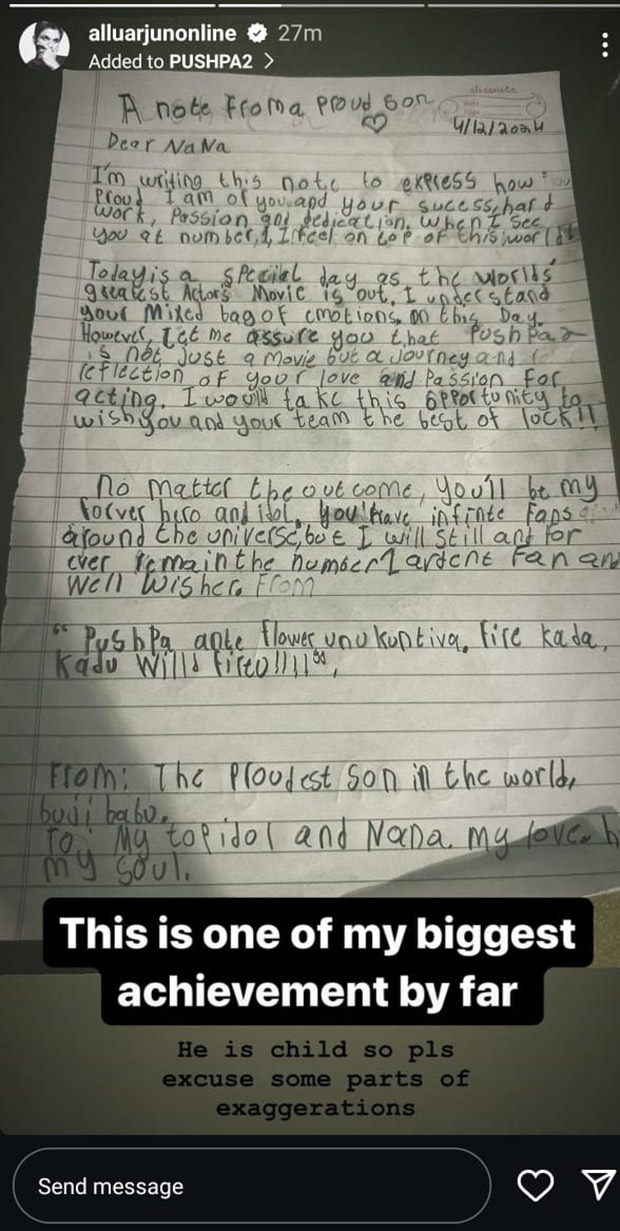 alluarjunonline 27m
Added to PUSHPA2 >
classmate
A note from a proud son
4/12/2024
Dear NaNa
I'm writing this note to express how
Proud I am of you and your sucess, hard
work, Passion and dedication. When I see
you at number 1, I feel on top of this world
Today is a special day as the world's
greatest Actor's Movie is out. I understand
your Mixed bag of emotions on this Day.
However, Let me assure you that Pushpa2
is not Just a Movie but a Journey and
reflection of your love and Passion For
acting. I would take this opportunity to
wish you and your team the best of lock!!
No matter the outcome, you'll be my
forver hero and idol. you have infinte Fans
around the universe, but I will still and for
ever remain the number 1 ardent Fan and
Well Wisher. From
“ Pushpa ante flower unukuntiva, Fire kada,
Kadu Willd fireo!!!!”,
From: The Proudest Son in the world,
buji babu.
To: My top idol and NaNa. My love.
my soul.
This is one of my biggest
achievement by far
He is child so pls
excuse some parts of
exaggerations
Send message